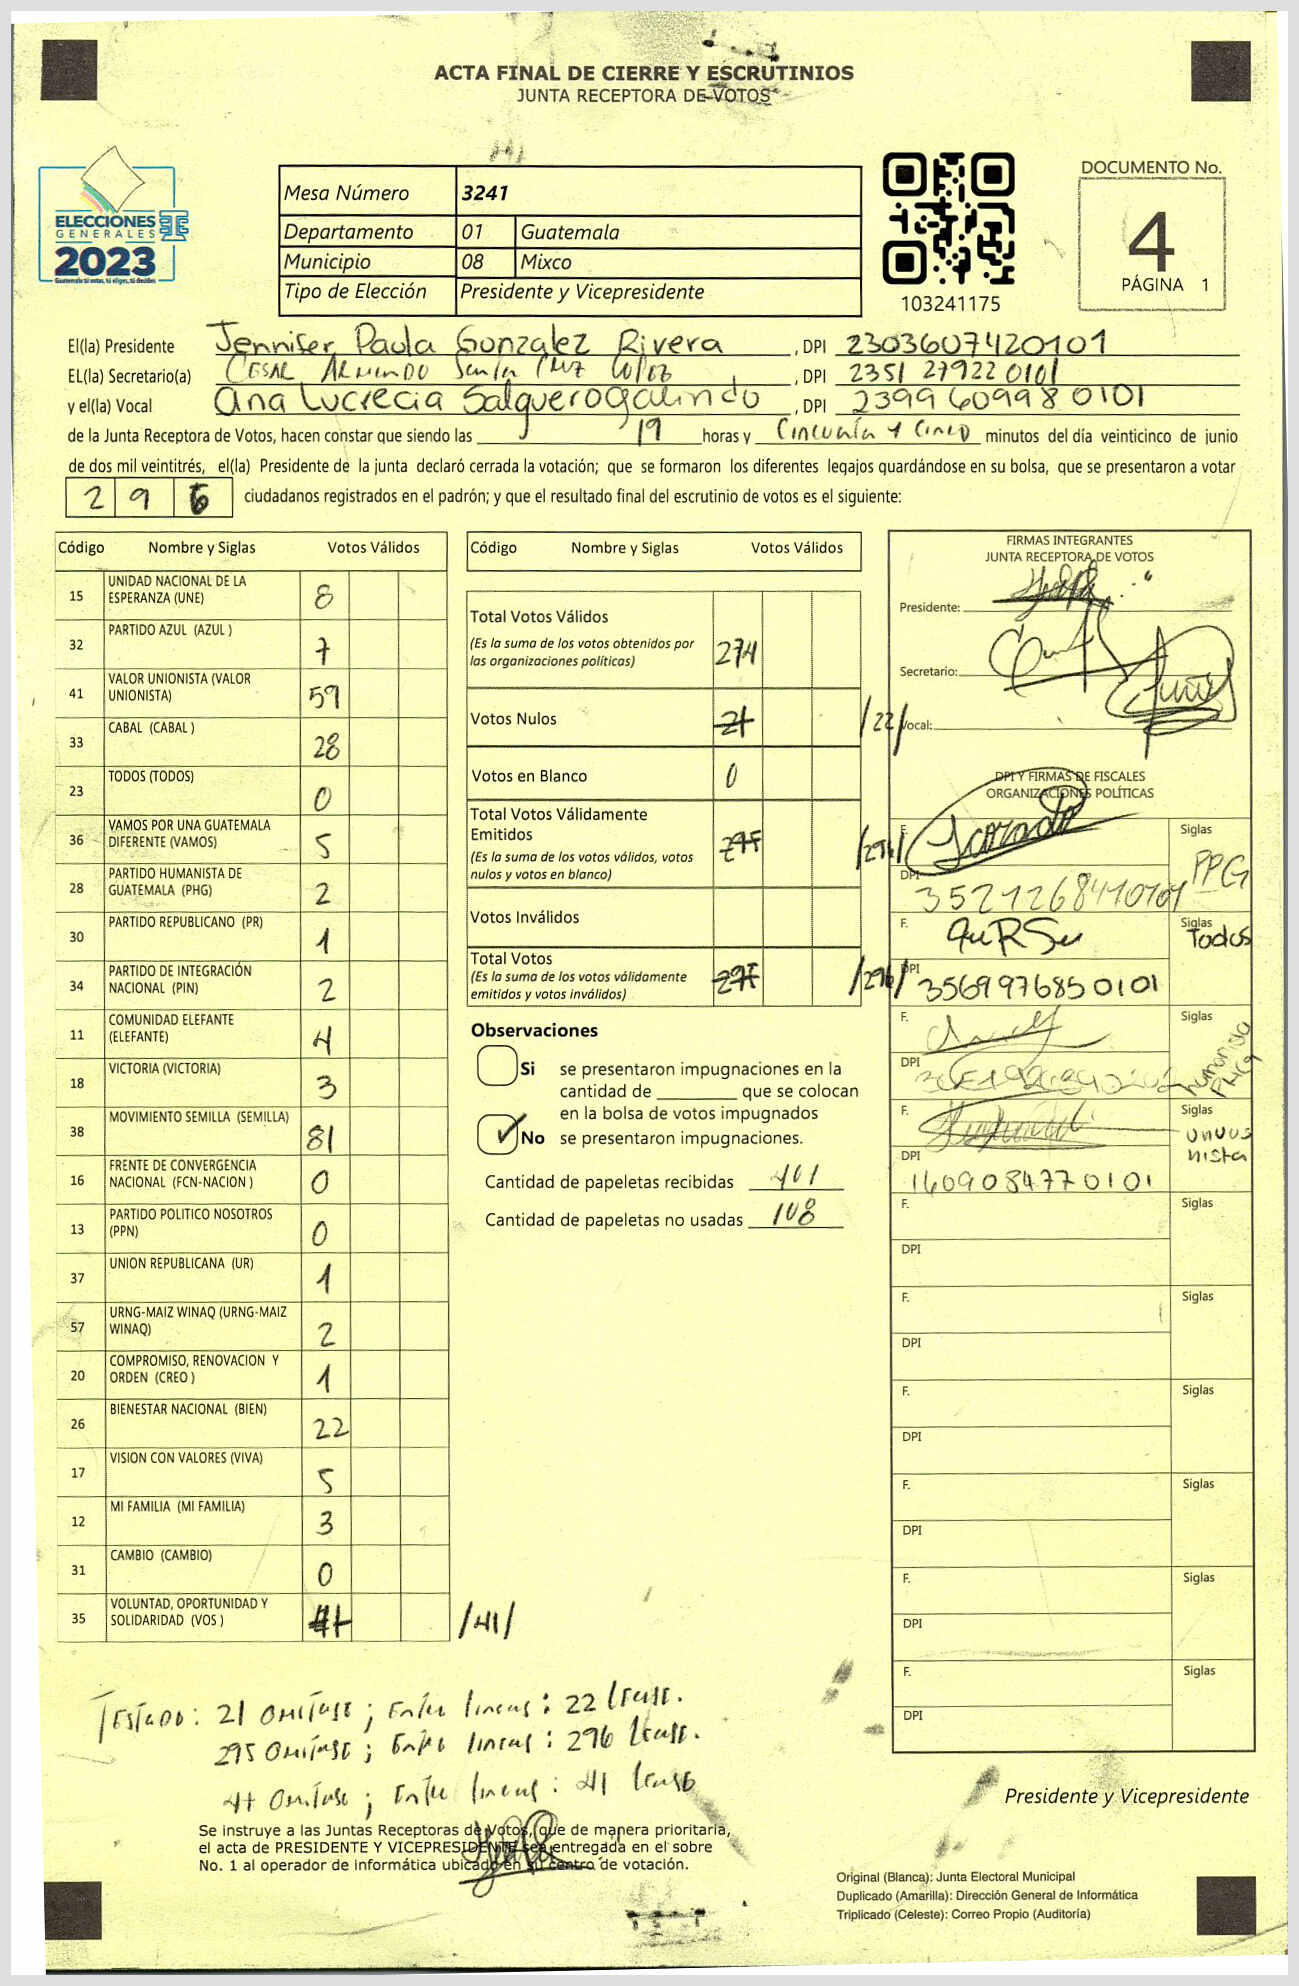 ACTA FINAL DE CIERRE Y ESCRUTINIOS
JUNTA RECEPTORA DE VOTOS
ELECCIONES
GENERALES
2023
Guatemala tú votas, tú eliges, tú decides
Mesa Número 3241
Departamento 01 Guatemala
Municipio 08 Mixco
Tipo de Elección Presidente y Vicepresidente
103241175
DOCUMENTO No.
4
PÁGINA 1
El(la) Presidente Jennifer Paola Gonzalez Rivera , DPI 2303607420101
EL(la) Secretario(a) CESAR ARMANDO Santa CRUZ LOPEZ , DPI 2351 27922 0101
y el(la) Vocal Ana Lucrecia Salguerogalindo , DPI 2399609980101
de la Junta Receptora de Votos, hacen constar que siendo las 19 horas y Cincuenta y Cinco minutos del día veinticinco de junio
de dos mil veintitrés, el(la) Presidente de la junta declaró cerrada la votación; que se formaron los diferentes legajos guardándose en su bolsa, que se presentaron a votar
296 ciudadanos registrados en el padrón; y que el resultado final del escrutinio de votos es el siguiente:
Código Nombre y Siglas Votos Válidos
15 UNIDAD NACIONAL DE LA ESPERANZA (UNE) 8
32 PARTIDO AZUL (AZUL ) 7
41 VALOR UNIONISTA (VALOR UNIONISTA) 59
33 CABAL (CABAL ) 28
23 TODOS (TODOS) 0
36 VAMOS POR UNA GUATEMALA DIFERENTE (VAMOS) 5
28 PARTIDO HUMANISTA DE GUATEMALA (PHG) 2
30 PARTIDO REPUBLICANO (PR) 1
34 PARTIDO DE INTEGRACIÓN NACIONAL (PIN) 2
11 COMUNIDAD ELEFANTE (ELEFANTE) 4
18 VICTORIA (VICTORIA) 3
38 MOVIMIENTO SEMILLA (SEMILLA) 81
16 FRENTE DE CONVERGENCIA NACIONAL (FCN-NACION ) 0
13 PARTIDO POLITICO NOSOTROS (PPN) 0
37 UNION REPUBLICANA (UR) 1
57 URNG-MAIZ WINAQ (URNG-MAIZ WINAQ) 2
20 COMPROMISO, RENOVACION Y ORDEN (CREO ) 1
26 BIENESTAR NACIONAL (BIEN) 22
17 VISION CON VALORES (VIVA) 5
12 MI FAMILIA (MI FAMILIA) 3
31 CAMBIO (CAMBIO) 0
35 VOLUNTAD, OPORTUNIDAD Y SOLIDARIDAD (VOS ) /41/
Código Nombre y Siglas Votos Válidos
Total Votos Válidos 274
(Es la suma de los votos obtenidos por
las organizaciones políticas)
Votos Nulos 21 /22/
Votos en Blanco 0
Total Votos Válidamente
Emitidos 295 /296/
(Es la suma de los votos válidos, votos
nulos y votos en blanco)
Votos Inválidos
Total Votos 295 /296/
(Es la suma de los votos válidamente
emitidos y votos inválidos)
Observaciones
Si se presentaron impugnaciones en la
cantidad de ________ que se colocan
en la bolsa de votos impugnados
No se presentaron impugnaciones.
Cantidad de papeletas recibidas 401
Cantidad de papeletas no usadas 108
FIRMAS INTEGRANTES
JUNTA RECEPTORA DE VOTOS
Presidente:
Secretario:
Vocal:
DPI Y FIRMAS DE FISCALES
ORGANIZACIONES POLÍTICAS
F. Siglas PPG
DPI
F. Siglas Todos
DPI 3569976850101
F. Siglas Humanista PHG
DPI
F. Siglas unionista
DPI 1609084770101
F. Siglas
DPI
F. Siglas
DPI
F. Siglas
DPI
F. Siglas
DPI
F. Siglas
DPI
F. Siglas
DPI
TESTADO: 21 OMITASE ; Entre lineas : 22 lease.
295 OMITASE ; Entre lineas : 296 lease.
OMITASE ; Entre lineas : 41 lease
Se instruye a las Juntas Receptoras de Votos, que de manera prioritaria,
el acta de PRESIDENTE Y VICEPRESIDENTE sea entregada en el sobre
No. 1 al operador de informática ubicado en su centro de votación.
Presidente y Vicepresidente
Original (Blanca): Junta Electoral Municipal
Duplicado (Amarilla): Dirección General de Informática
Triplicado (Celeste): Correo Propio (Auditoría)